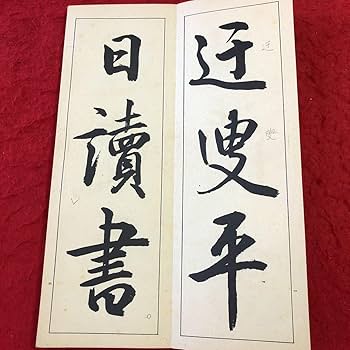 迂叟平
日讀書
迂
叟